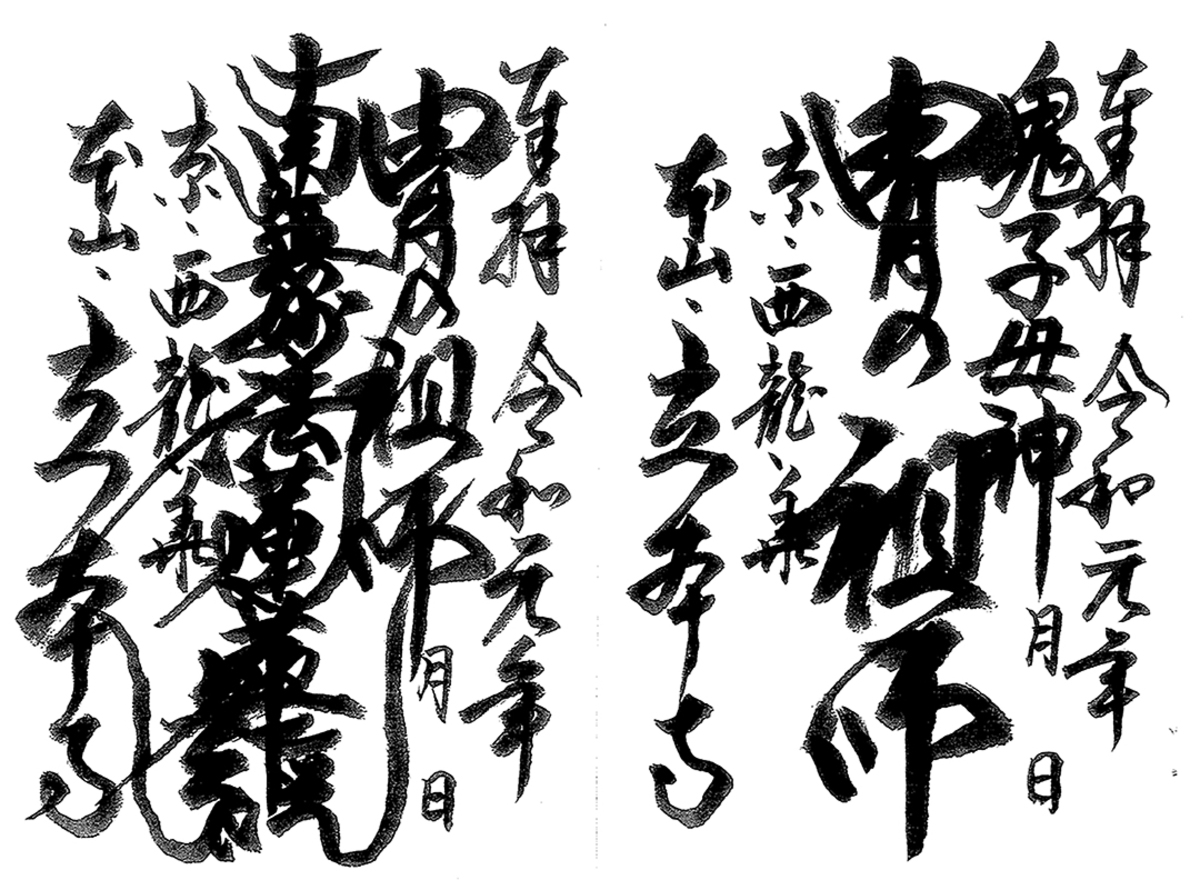 奉拝 令和元年
鬼子母神 月 日
冑の祖師
京、西龍華
本山、立本寺
奉拝 令和元年
冑の祖師 月 日
南無妙法蓮華経
京、西龍華
本山、立本寺